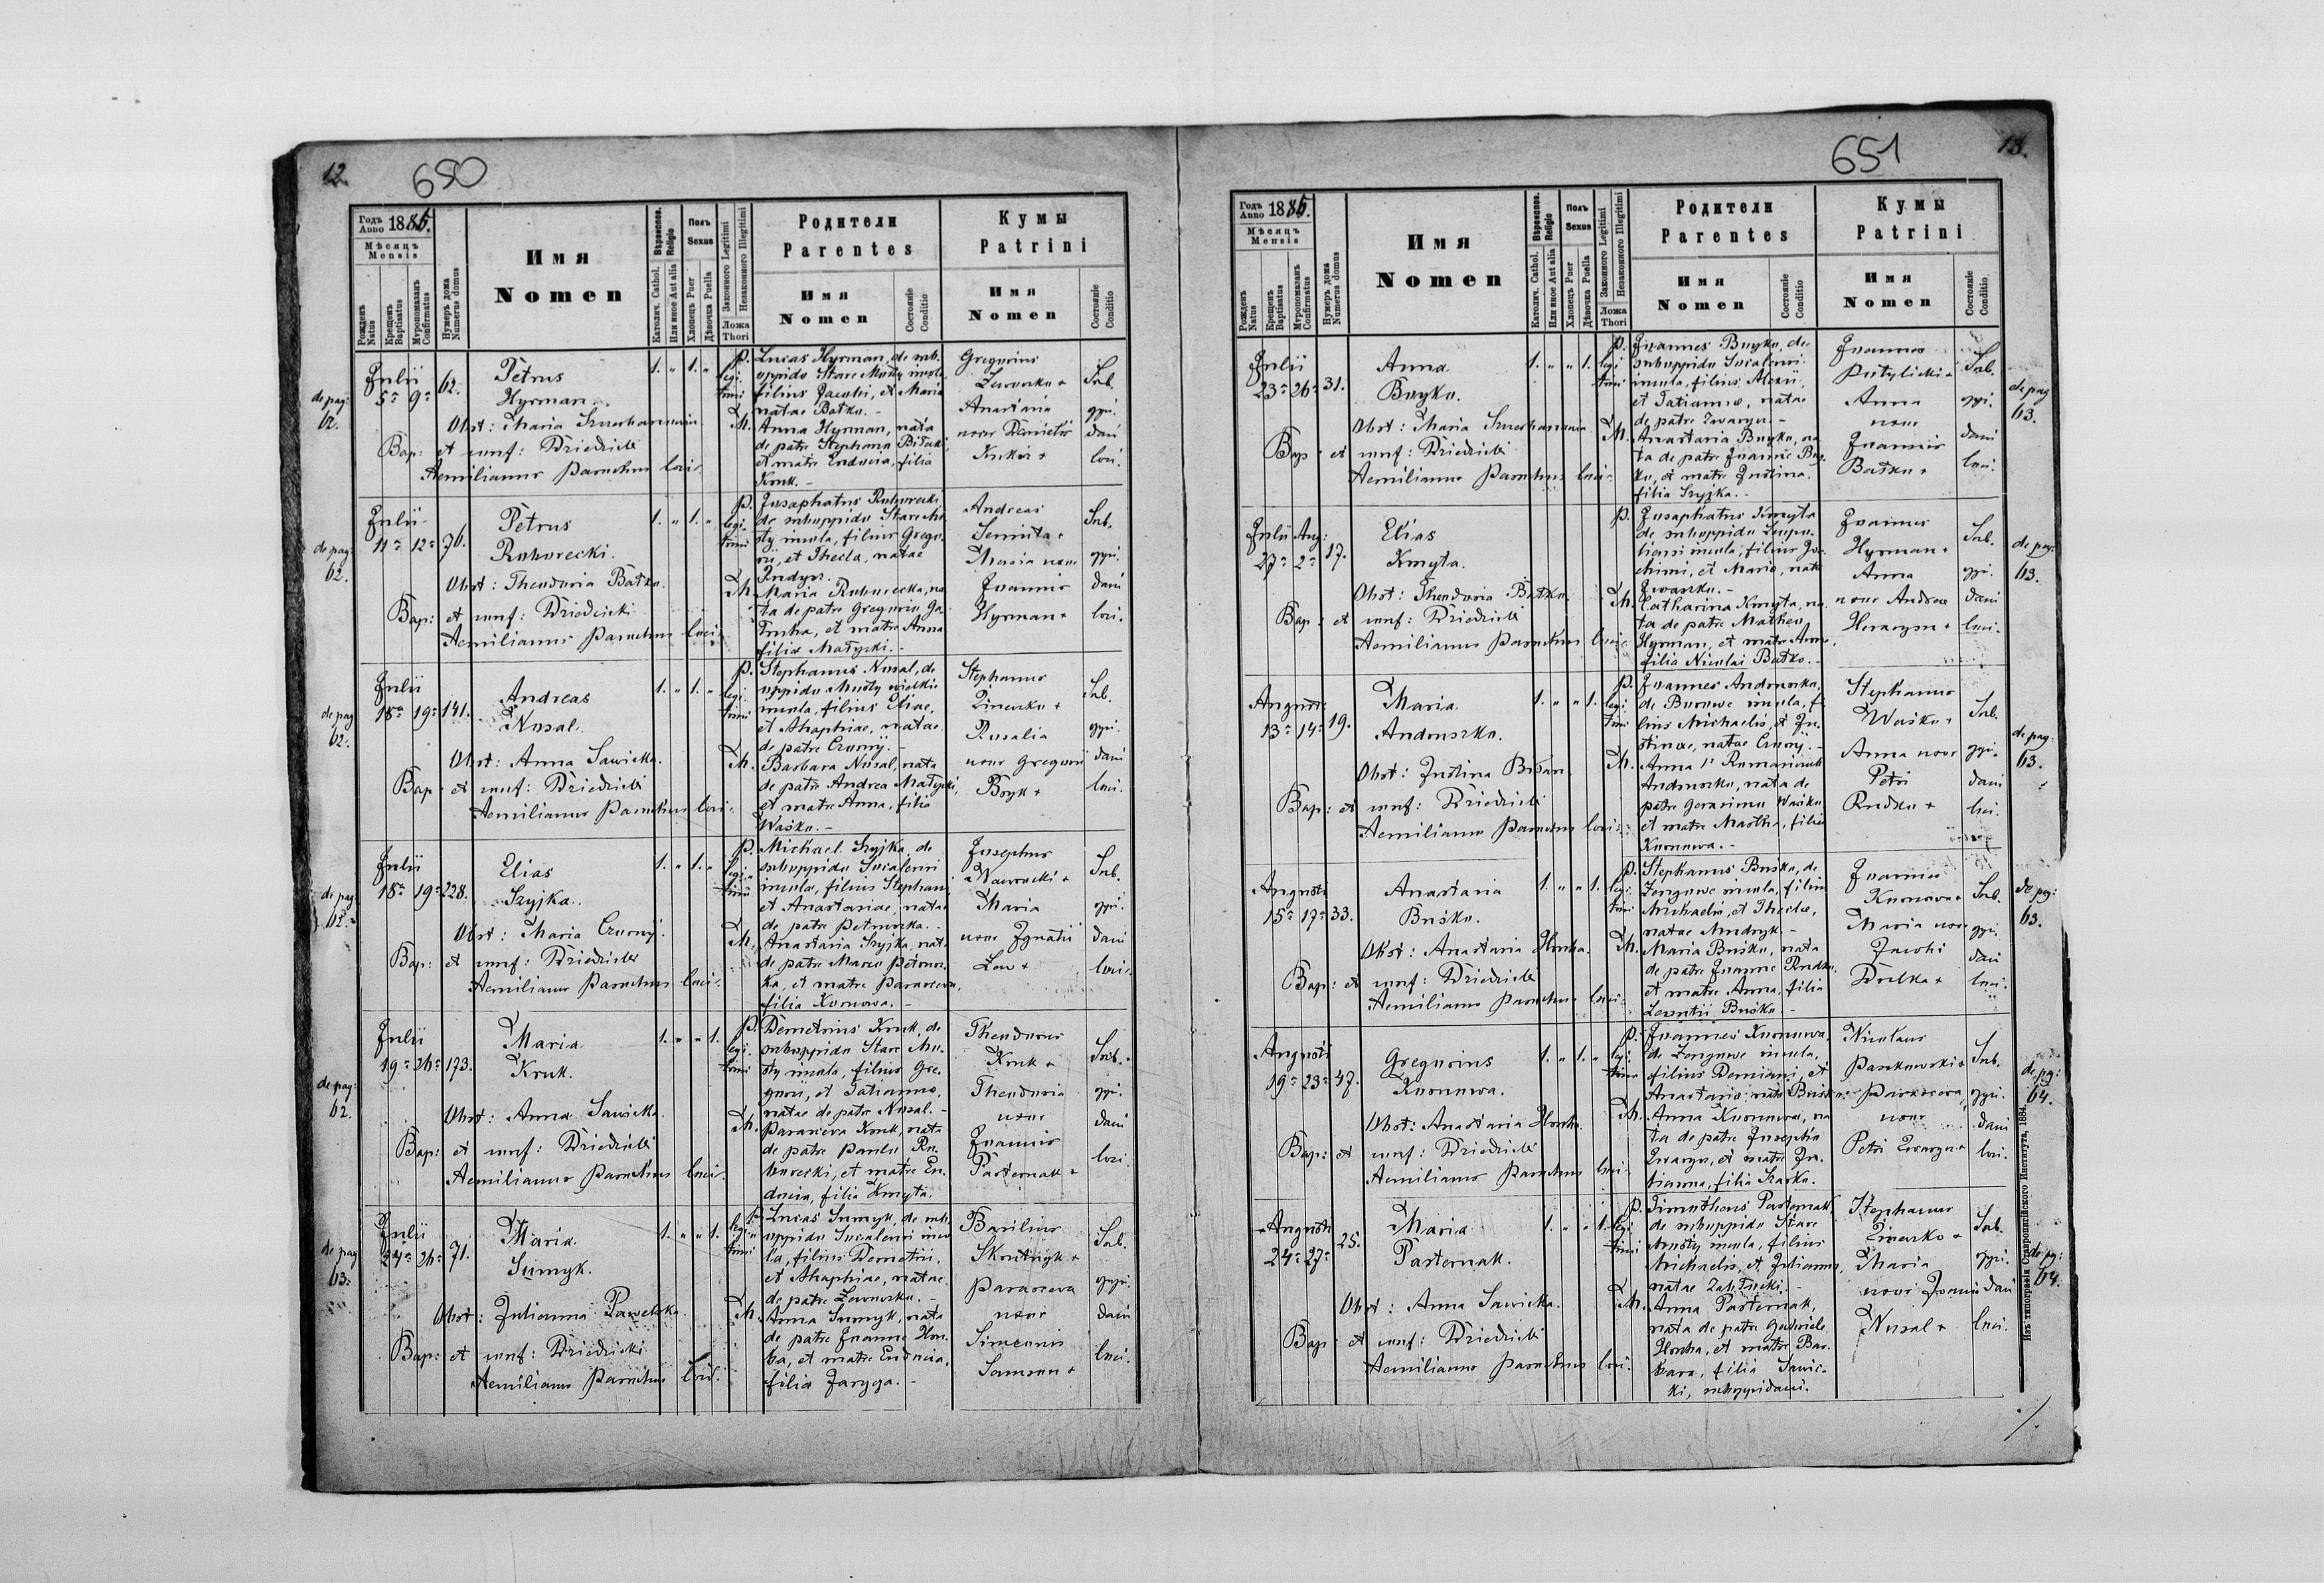 12.
650
Годъ Anno 1885.
Мѣсяцъ Mensis
Рожденъ Natus
Крещенъ Baptisatus
Мѵропомазанъ Confirmatus
Нумеръ дома Numerus domus
Имя
Nomen
Вѣроиспов. Religio
Католич. Cathol.
Или иное Aut alia
Полъ Sexus
Хлопецъ Puer
Дѣвочка Puella
Законного Legitimi
Незаконного Illegitimi
Ложа Thori
Родители
Parentes
Имя
Nomen
Состояніе Conditio
Кумы
Patrini
Имя
Nomen
Состояніе Conditio
de pag: 62.
Julii
5 9 62.
Petrus
Hyrman.
Obst: Maria
Bap: et conf: Dziedzicki
Aemilianus Parochus loci.
1. " 1. "
legitimi
P. Lucas Hyrman, de sub-
oppido Stare Miasty incola
filius Jacobi, et Maria
natae Batko. -
M. Anna Hyrman, nata
de patre Stephano
et matre Eudocia, filia
Kruk. -
Gregorius
Anastasia
uxor Demetrii
Sub.
oppi.
dani
loci.
de pag: 62.
Julii
11 12 76.
Petrus
Ruborecki.
Obst: Theodoria Batko
Bap: et conf: Dziedzicki
Aemilianus Parochus loci.
1. " 1. "
legitimi
P. Josaphatus Ruborecki
de suboppido Stare Mia-
sty incola, filius Grego-
rii, et Thecla, natae
M. Maria Ruborecka, na-
ta de patre Gregorio
et matre Anna
filia Matycki. -
Andreas
Maria uxor
Joannis
Hyrman +
Sub.
oppi.
dani
loci.
de pag 62.
Julii
18 19 141.
Andreas
Nosal.
Obst: Anna Sawicka.
Bap: et conf: Dziedzicki
Aemilianus Parochus loci.
1. " 1. "
legitimi
P. Stephanus Nosal, de
oppido Mosty wielkie
incola, filius Eliae,
et Ahaphiae, natae
de patre Czornij. -
M. Barbara Nosal, nata
de patre Andrea Matycki,
et matre Anna, filia
Waśko. -
Stephanus
Rosalia
uxor Gregorii
Boyk +
Sub.
oppi.
dani
loci.
de pag
Julii
18 19 228.
Elias
Szyjka.
Obst: Maria Czornij.
Bap: et conf: Dziedzicki
Aemilianus Parochus loci.
1. " 1. "
legitimi
P. Michael Szyjka, de
suboppido
incola, filius Stephani
et Anastasiae, natae
de patre Petruszka. -
M. Anastasia Szyjka, nata
de patre Marco Petrusz-
ka, et matre Parasceva,
filia Konowa. -
Josephus
Nawrocki +
Maria
uxor Ignatii
Lew +
Sub.
oppi.
dani
loci.
de pag: 62.
Julii
19 26 173.
Maria
Kruk.
Obst: Anna Sawicka
Bap: et conf: Dziedzicki
Aemilianus Parochus loci.
1. " " 1.
legitimi
P. Demetrius Kruk, de
suboppido Stare Mo-
sty incola, filius Gre-
gorii, et Tatianna,
natae de patre Nosal. -
M. Parasceva Kruk, nata
de patre Paulo Ru-
borecki, et matre Eu-
docia, filia Kmyta.
Theodorus
Kruk +
Theodoria
uxor
Joannis
Pasternak +
Sub.
oppi.
dani
loci.
de pag 63.
Julii
24 26 71.
Maria
Sumyk.
Obst: Julianna Pawelska
Bap: et conf: Dziedzicki
Aemilianus Parochus loci.
1. " " 1.
legitimi
P. Lucas Sumyk, de sub-
oppido
filius Demetrii,
et Ahaphiae, natae
de patre
M. Anna Sumyk, nata
de patre Joanne Hon-
ka, et matre Eudocia,
filia Jaryga. -
Basilius
Parasceva
uxor
Simeonis
Samson +
Sub.
oppi.
dani
loci.
651
13.
Годъ Anno 1885.
Мѣсяцъ Mensis
Рожденъ Natus
Крещенъ Baptisatus
Мѵропомазанъ Confirmatus
Нумеръ дома Numerus domus
Имя
Nomen
Вѣроиспов. Religio
Католич. Cathol.
Или иное Aut alia
Полъ Sexus
Хлопецъ Puer
Дѣвочка Puella
Законного Legitimi
Незаконного Illegitimi
Ложа Thori
Родители
Parentes
Имя
Nomen
Состояніе Conditio
Кумы
Patrini
Имя
Nomen
Состояніе Conditio
Julii
23 26 31.
Anna
Boyko.
Obst: Maria
Bap: et conf: Dziedzicki
Aemilianus Parochus loci.
1. " " 1.
legitimi
P. Joannes Boyko, de
suboppido
incola, filius Alexii,
et Tatianna, natae
de patre Zwaryn -
M. Anastasia Boyko, na-
ta de patre Joanne Boy-
ko, et matre Justina,
filia Szyjka. -
Joannes
Putylicki +
Anna
uxor
Joannis
Batko +
Sub.
oppi.
dani
loci.
de pag 63.
Julii Aug:
27 2 17.
Elias
Kmyta.
Obst: Theodoria Batko.
Bap: et conf: Dziedzicki
Aemilianus Parochus loci.
P. Josaphatus Kmyta
de suboppido
incola, filius Joa-
chimi, et Maria, nata
Iwaszko. -
M. Catharina Kmyta, na-
ta de patre Matheo
Hyrman, et matre Anna,
filia Nicolai Batko. -
Joannes
Hyrman +
Anna
uxor Andreae
Sub.
oppi.
dani
loci.
de pag: 63.
Augusti
13 14 19.
Maria
Andruszko.
Obst: Justina
Bap: et conf: Dziedzicki
Aemilianus Parochus loci.
1. " " 1.
legitimi
P. Joannes Andruszko,
de Borowe incola, fi-
lius Michaelis, et Ju-
stinae, natae Czornij. -
M. Anna
Andruszko, nata de
patre Gerasimo Waśko,
et matre Martha, filia
Konowa. -
Stephanus
Waśko +
Anna uxor
Petri
Rudko +
Sub.
oppi.
dani
loci.
de pag: 63.
Augusti
15 17 33.
Anastasia
Buśko.
Obst: Anastasia Honka.
Bap: et conf: Dziedzicki
Aemilianus Parochus loci.
1. " " 1.
legitimi
P. Stephanus Buśko, de
incola, filius
Michaelis, et Theclae,
natae Mudryk. -
M. Maria Buśko, nata
de patre Joanne Rudko,
et matre Anna, filia
Leontii Buśko. -
Joannes
Konowa +
Maria uxor
Jacobi
Sub.
oppi.
dani
loci.
de pag: 63.
Augusti
19 23 47.
Gregorius
Konowa.
Obst: Anastasia Honka
Bap: et conf: Dziedzicki
Aemilianus Parochus loci.
1. " 1. "
legitimi
P. Joannes Konowa,
incola,
filius Demiani, et
Anastasia: nata Buśko.
M. Anna Konowa, na-
ta de patre Josepho
Zwaryn, et matre Ta-
tianna, filia
Nicolaus
Paszkowski +
Parasceva
uxor
Petri Zwaryn +
Sub.
oppi.
dani
loci.
de pg: 64.
Augusti
24 27 25.
Maria
Pasternak.
Obst: Anna Sawicka.
Bap: et conf: Dziedzicki
Aemilianus Parochus loci.
1. " " 1.
legitimi
P. Timotheus Pasternak,
de suboppido Stare
Mosty incola, filius
Michaelis, et Julianna,
natae
M. Anna Pasternak,
nata de patre Gabriele
Honka, et matre Bar-
bara, filia Sawic-
ki, suboppidani.
Stephanus
Maria
uxor
Nosal +
Sub.
oppi.
dani
loci.
de pg: 64.
Изъ типографіи Ставропигійского Института, 1884.